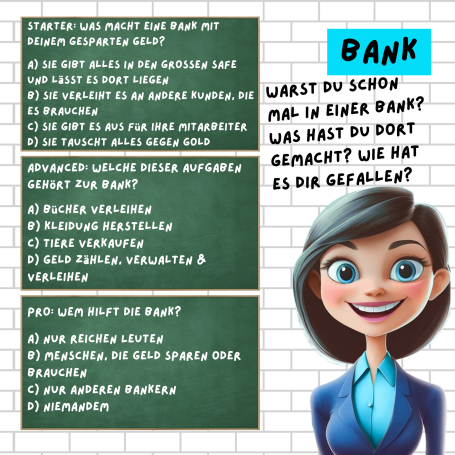 STARTER: WAS MACHT EINE BANK MIT
DEINEM GESPARTEN GELD?
A) SIE GIBT ALLES IN DEN GROSSEN SAFE
UND LÄSST ES DORT LIEGEN
B) SIE VERLEIHT ES AN ANDERE KUNDEN, DIE
ES BRAUCHEN
C) SIE GIBT ES AUS FÜR IHRE MITARBEITER
D) SIE TAUSCHT ALLES GEGEN GOLD
ADVANCED: WELCHE DIESER AUFGABEN
GEHÖRT ZUR BANK?
A) BÜCHER VERLEIHEN
B) KLEIDUNG HERSTELLEN
C) TIERE VERKAUFEN
D) GELD ZÄHLEN, VERWALTEN &
VERLEIHEN
PRO: WEM HILFT DIE BANK?
A) NUR REICHEN LEUTEN
B) MENSCHEN, DIE GELD SPAREN ODER
BRAUCHEN
C) NUR ANDEREN BANKERN
D) NIEMANDEM
BANK
WARST DU SCHON
MAL IN EINER BANK?
WAS HAST DU DORT
GEMACHT? WIE HAT
ES DIR GEFALLEN?